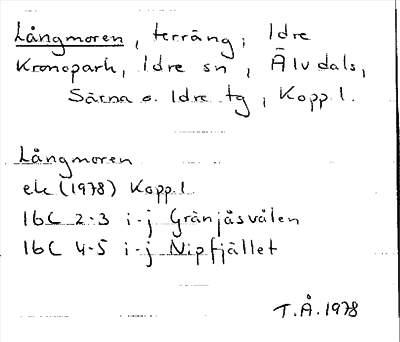 Långmoren, terräng; Idre
Kronopark, Idre sn, Älvdals,
Särna o. Idre tg, Kopp.l.
Långmoren
ek (1978) Kopp.l.
16C 2-3 i-j Gränjåsvålen
16C 4-5 i-j Nipfjället
T.Å. 1978